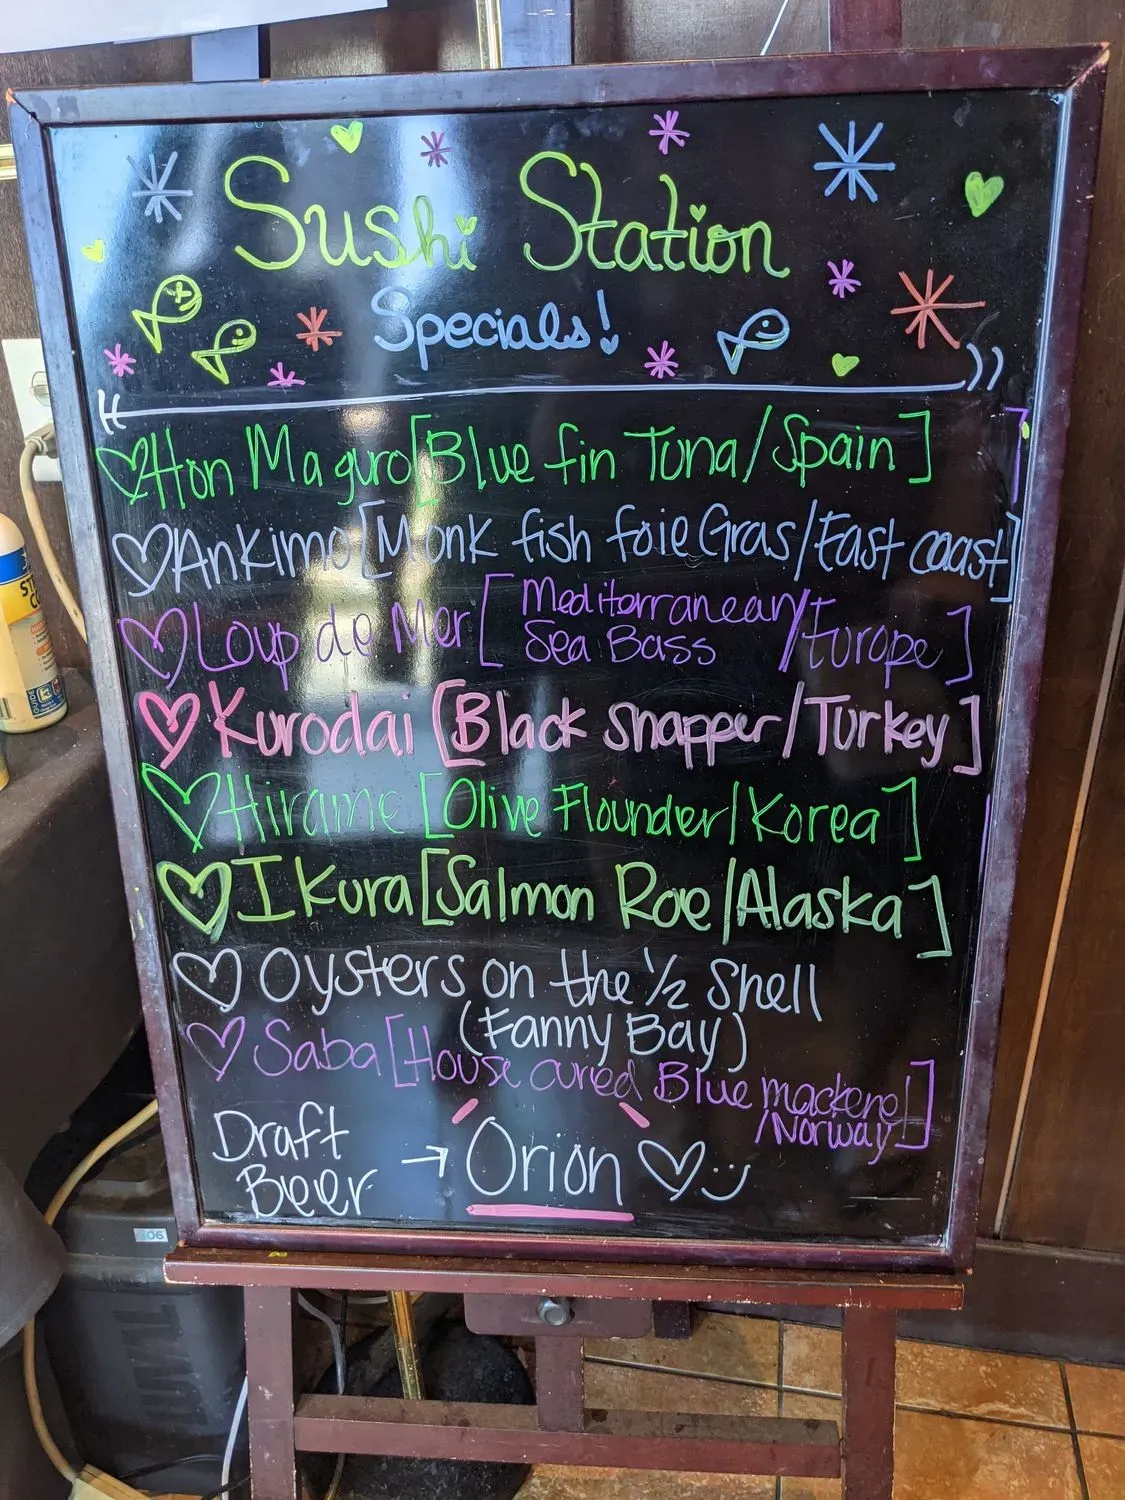 Sushi Station
Specials!
Hon Maguro [Blue fin Tuna/Spain]
Ankimo [Monk fish foie Gras/East coast]
Loup de Mer [Mediterranean
Sea Bass /Europe]
Kurodai [Black snapper/Turkey]
Hirame [Olive Flounder/Korea]
Ikura [Salmon Roe/Alaska]
Oysters on the 1/2 Shell
(Fanny Bay)
Saba [House cured Blue mackerel
/Norway]
Draft
Beer → Orion
06